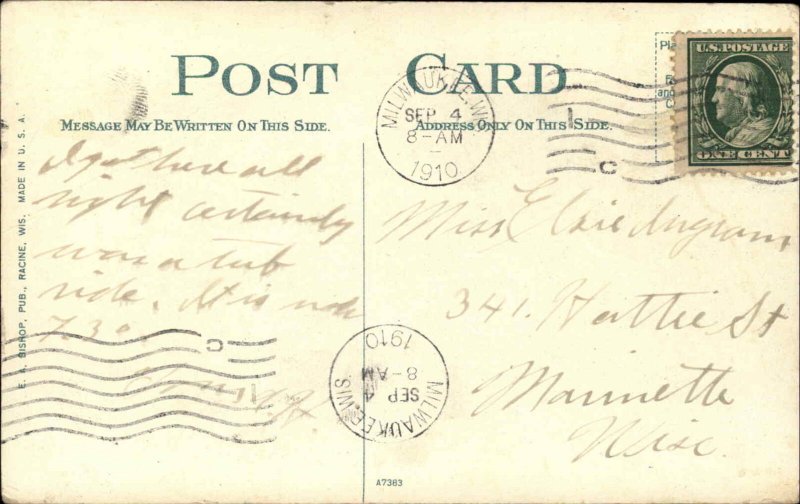 POST CARD
MESSAGE MAY BE WRITTEN ON THIS SIDE.
ADDRESS ONLY ON THIS SIDE.
Pla
and
U.S. POSTAGE
ONE CENT
MILWAUKEE, WIS
SEP 4
8-AM
1910
C
I got here all
right certainly
was a tub
ride. It is now
7.30.
Miss Elsie Ingram
341. Hattie St
Marinette
Wisc.
MILWAUKEE, WIS
SEP 4
8-AM
1910
C
E. A. BISHOP, PUB., RACINE, WIS. MADE IN U. S. A.
A7363